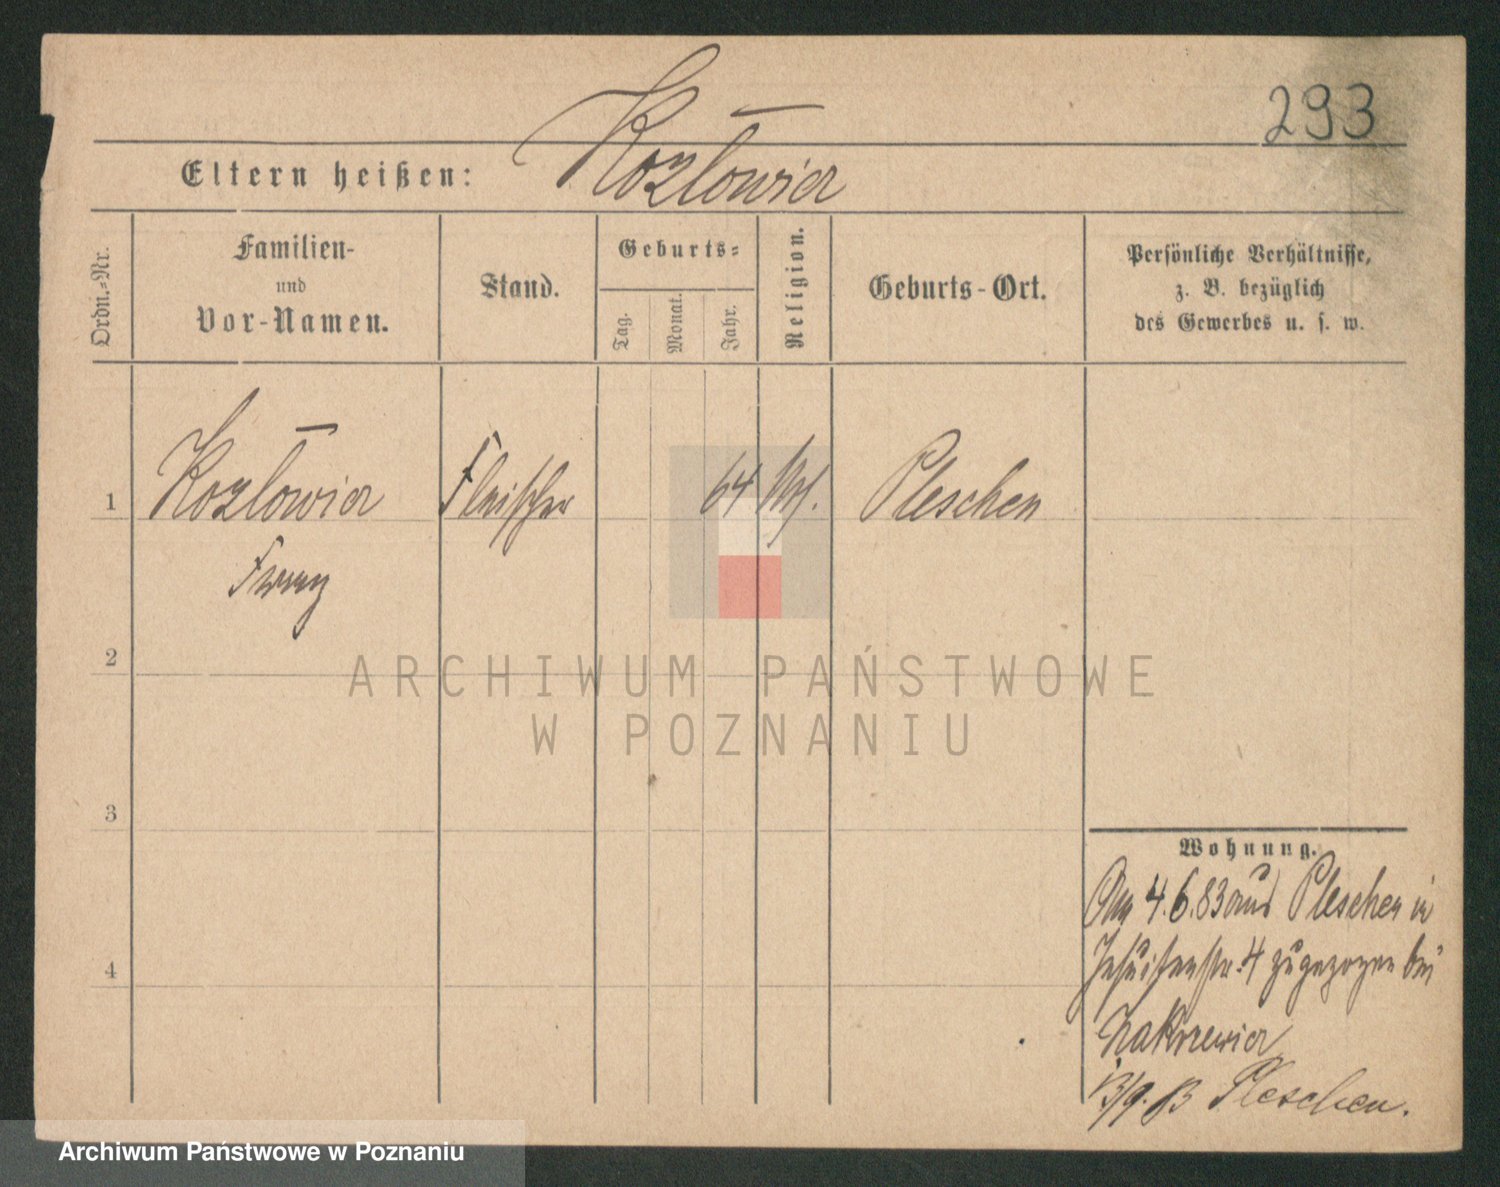 293
Eltern heißen: Kozłowicz
Ordn.-Nr.
Familien-
und
Vor-Namen.
Stand.
Geburts-
Tag.
Monat.
Jahr.
Religion.
Geburts-Ort.
Persönliche Verhältnisse,
z. B. bezüglich
des Gewerbes u. s. w.
1 Kozłowicz Fleischer 64 Pleschen
Franz
2
ARCHIWUM PAŃSTWOWE
W POZNANIU
3
Wohnung.
Am 4.6.83 aus Pleschen in
4
Jesuitenstr. 4 zugezogen bei
Pleschen.
Archiwum Państwowe w Poznaniu